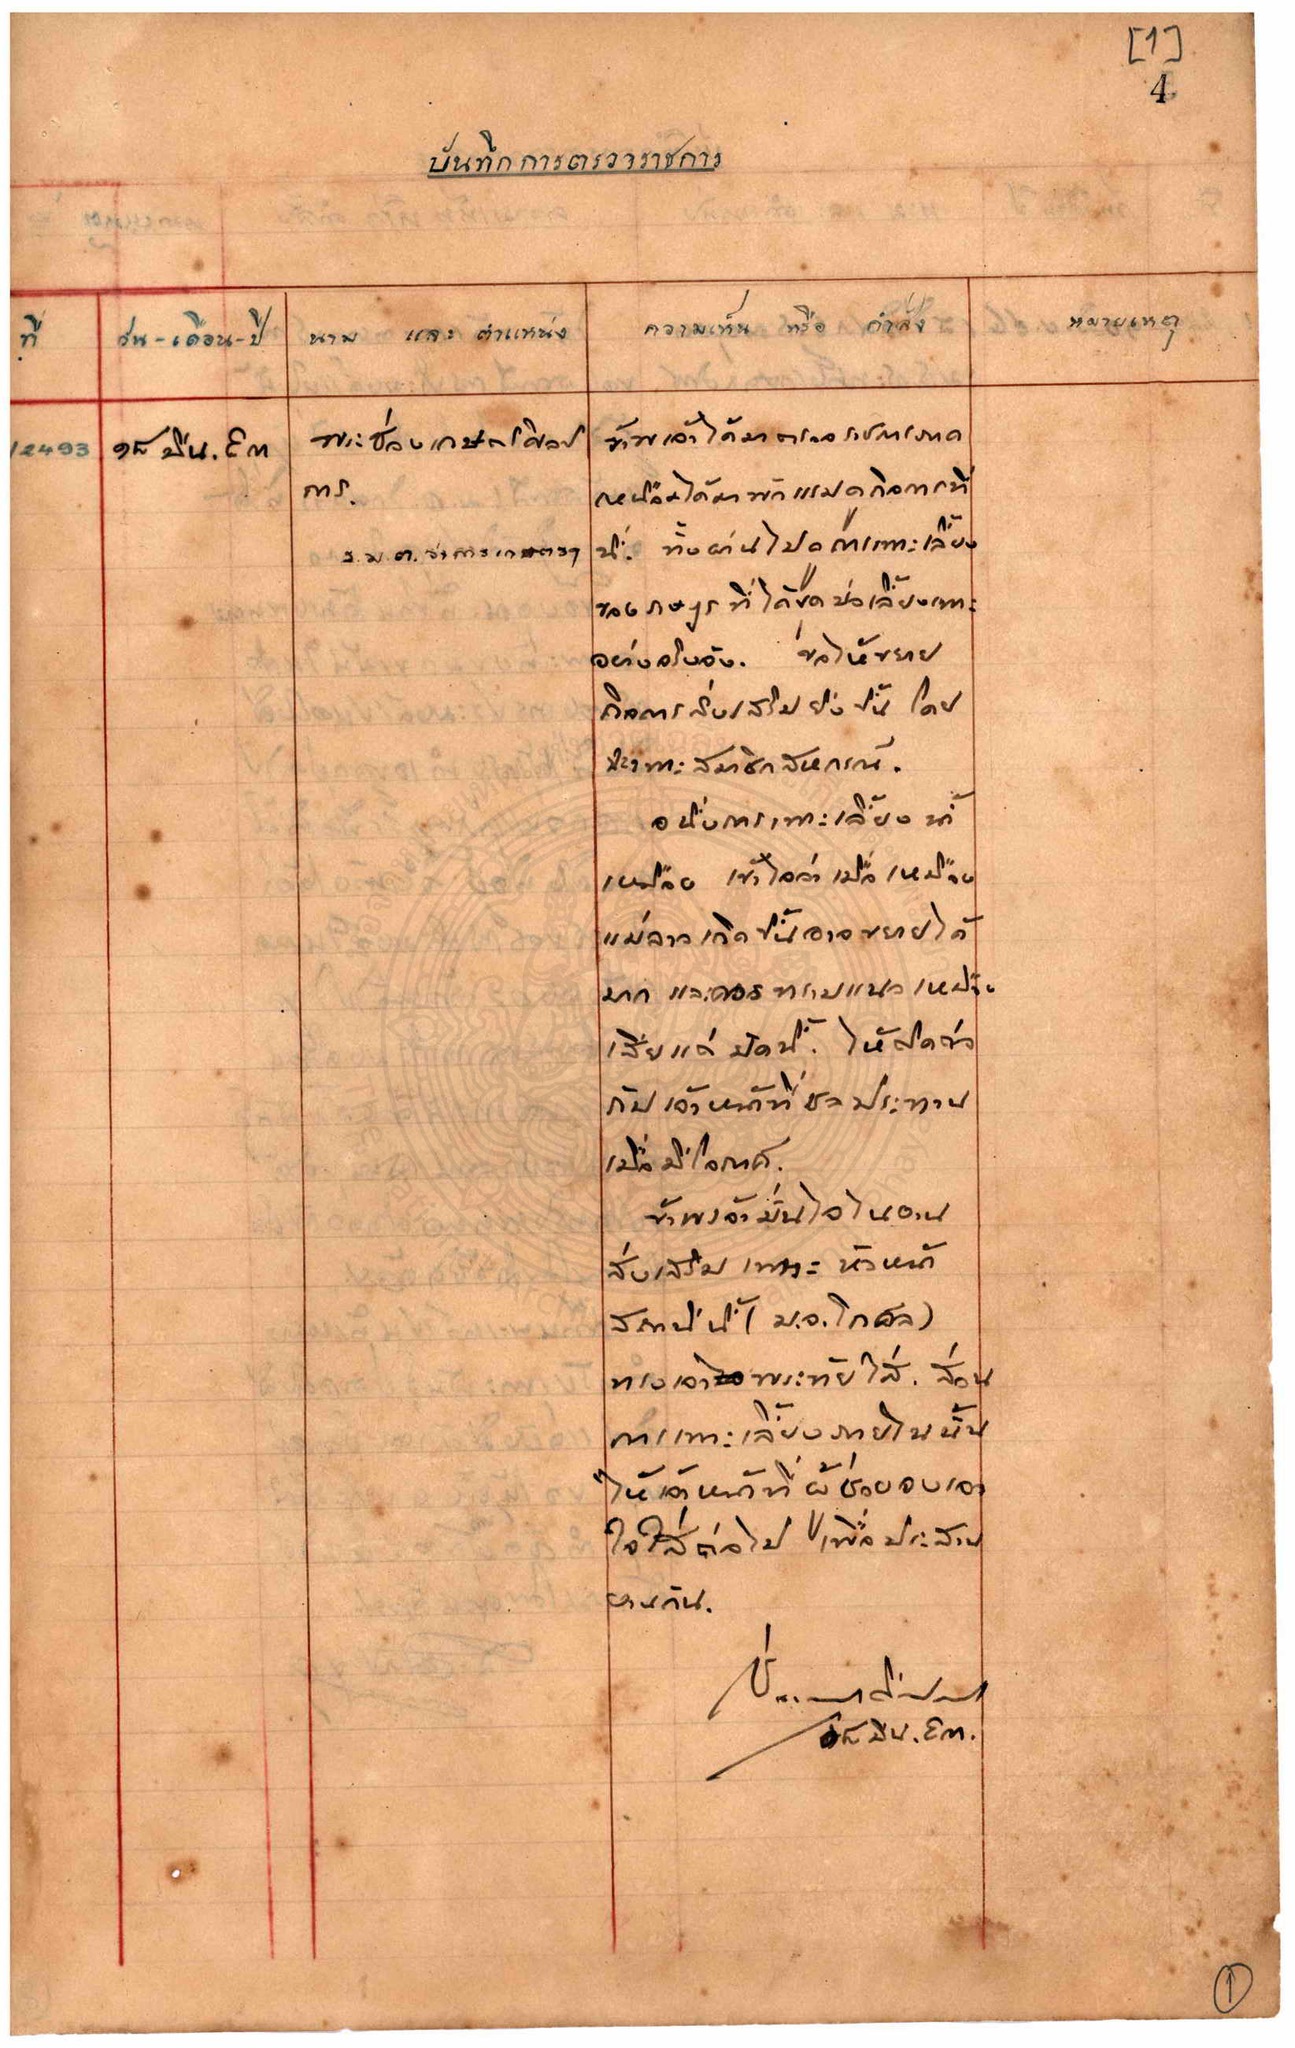 [1]
4
บันทึกการตรวจราชการ
ที่
วัน-เดือน-ปี
นาม และ ตำแหน่ง
ความเห็น หรือ คำสั่ง
หมายเหตุ
๑๕ มีน. ๙๓
พระช่วงเกษตรศิลป
การ.
ร.ม.ต. ว่าการเกษตรฯ
ข้าพเจ้าได้มาตรวจราชการภาค
เหนือได้มาพักแรมดูกิจการที่
นี่. ทั้งผ่านไปดูการเพาะเลี้ยง
ของราษฎรที่ได้ขุดบ่อเลี้ยงเพาะ
อย่างจริงจัง. ขอให้ขยาย
กิจการส่งเสริมยิ่งขึ้น โดย
ฉะเพาะสมาชิกสหกรณ์.
อนึ่งการเพาะเลี้ยงนี้
เหมือง เข้าใจว่าเมื่อเหมือง
แม่ลาวเกิดขึ้นอาจขยายได้
มาก และควรทาบแนวเหมือง
เสียแต่บัดนี้. ให้ติดต่อ
กับเจ้าหน้าที่ชลประทาน
เมื่อมีโอกาศ.
ข้าพเจ้ามั่นใจในงาน
ส่งเสริมเพราะหัวหน้า
สถานีนี้ (ม.จ.โกศล)
ทรงเอาพระทัยใส่. ส่วน
การเพาะเลี้ยงภายในนั้น
ให้เจ้าหน้าที่ผู้ช่วยจงเอา
ใจใส่ต่อไป เพื่อประสาน
งานกัน.
๑๕ มีน. ๙๓.